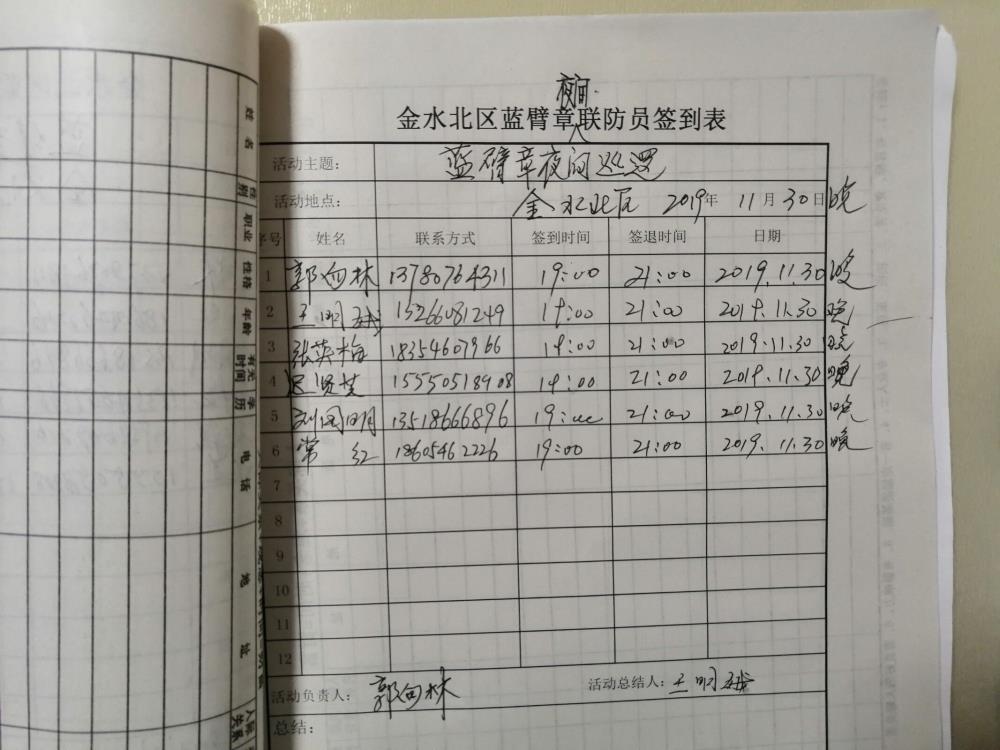 夜间
金水北区蓝臂章联防员签到表
活动主题: 蓝臂章夜间巡逻
活动地点: 金水北区 2019年 11月30日晚
序号 姓名 联系方式 签到时间 签退时间 日期
1 郭向林 13780764311 19:00 21:00 2019.11.30晚
2 王明 13266081249 19:00 21:00 2019.11.30晚
3 张英梅 18354607966 19:00 21:00 2019.11.30晚
4 迟贤芝 15550518908 19:00 21:00 2019.11.30晚
5 刘国明 13518666896 19:00 21:00 2019.11.30晚
6 常红 18605462226 19:00 21:00 2019.11.30晚
7
8
9
10
11
12
活动负责人: 郭向林 活动总结人: 王明
总结:
姓名
性别
职业
性格
年龄
有无时间
学历
电话
地址
人际关系